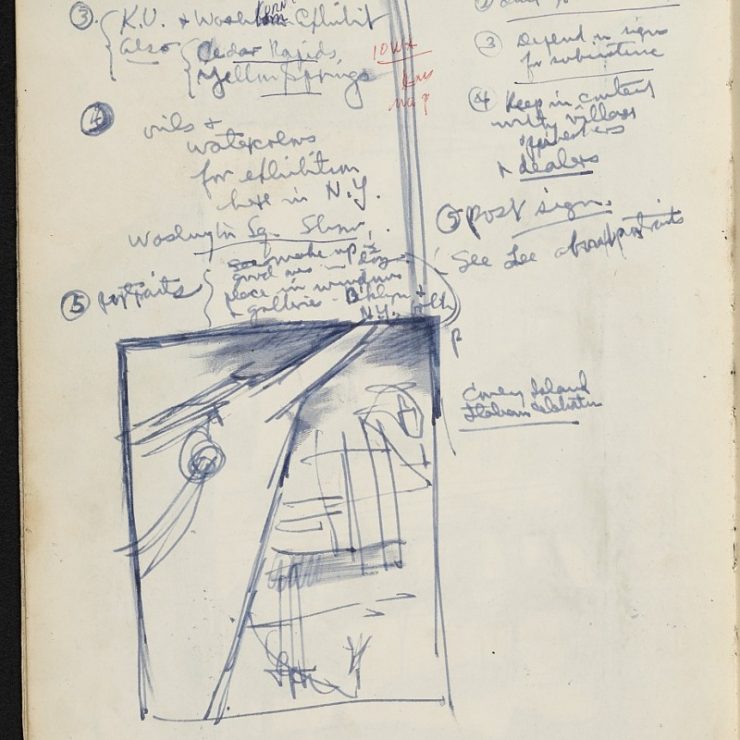 ③ K.U. & Washburn Exhibit
Also Cedar Rapids
Yellow Springs
Iowa
④ oils &
watercolors
for exhibition
here in N.Y.
Washington Sq. Show.
⑤ portraits
make up
good ones in
place in windows
& galleries - Bklyn &
N.Y.
③ Depend on signs
for subsistence
④ Keep in contact
with village
& dealers
⑤ post sign.
See Lee about portraits
Coney Island
Italian celebration